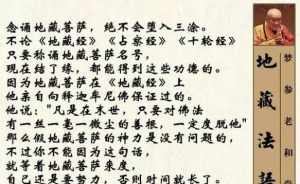 念诵地藏菩萨，绝不会堕入三涂。
不论《地藏经》《占察经》《十轮经》
只要称诵地藏菩萨名号，
现在结了缘，都能得到这些功德。
因为地藏菩萨在《地藏经》上
他亲自向释迦牟尼佛保证过的。
他说：“凡是在末世，只要对佛法
有一丝一毫一微尘的善根，一定度脱他”
那么假地藏菩萨的神力是没有问题的，
不过你不能因为这句话，
就等着地藏菩萨来度，
自己还是要努力，否则时间就长了。
地藏法語
梦参老和尚